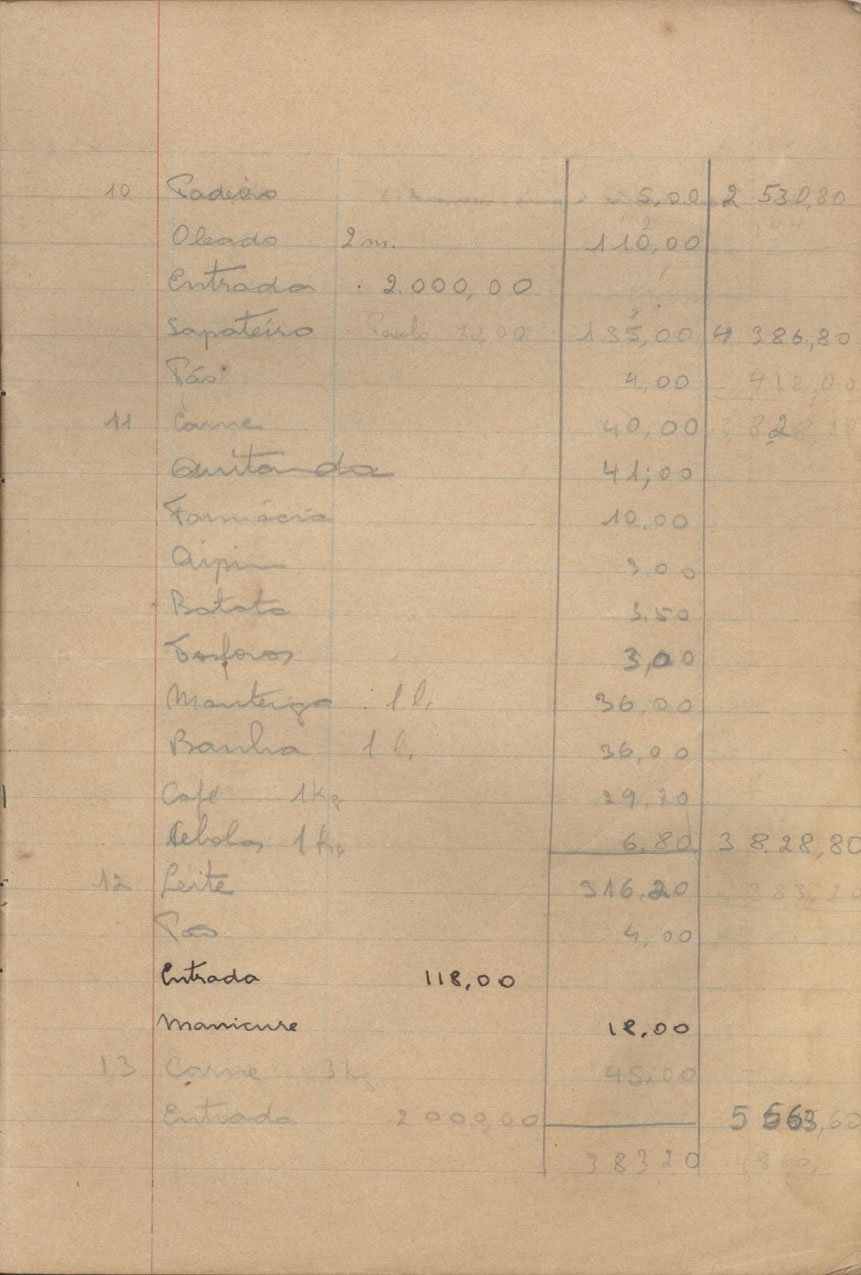 10 Padeiro 5,00 2 530,80
Oleado 2 m. 110,00
Entrada . 2.000,00
Sapateiro Paulo 135,00 4 386,80
Pão 4,00
11 Carne 40,00
Quitanda 41,00
Farmácia 10,00
Aipim 3,00
Batata 3,50
Fosforos 3,00
Manteiga : 1 l. 36,00
Banha 1 l. 36,00
Café 1 Kg 29,70
Cebolas 1 kg 6.80 3 8.28,80
12 Leite 316,20 383,20
Pão 4,00
Entrada 118,00
Manicure 18,00
13 Carne 3 kg 45,00
Entrada 2 000,00 5 563,60
38320